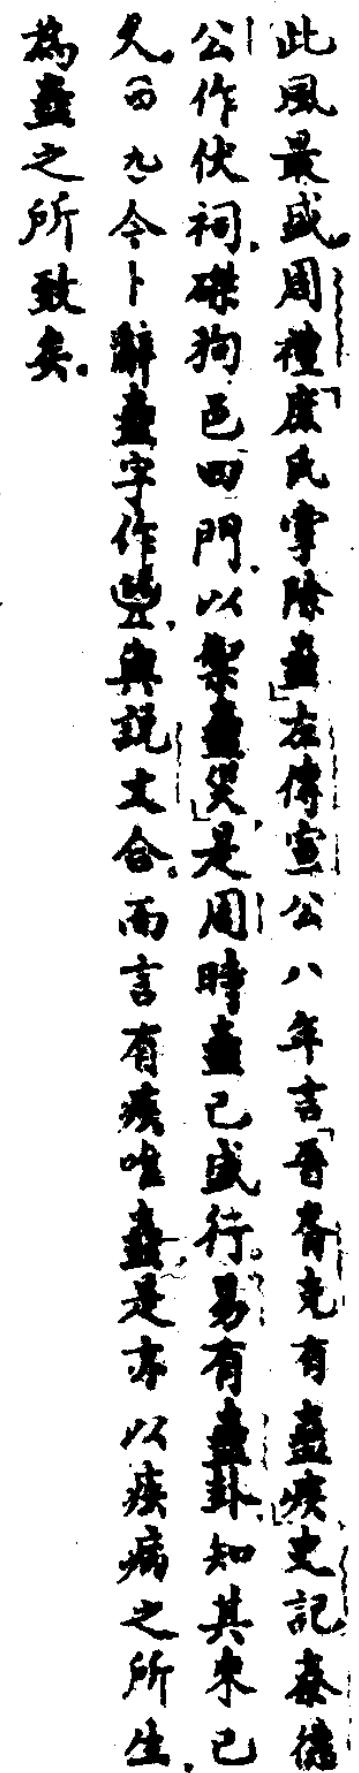 此風最盛。周禮「庶氏掌除蠱」左傳宣公八年言「晉胥克有蠱疾」史記秦德
公作伏祠，磔狗邑四門，以禦蠱災」，是周時蠱已盛行。易有蠱卦，知其來已
久（四九）今卜辭蠱字作，與說文合。而言有疾唯蠱，是亦以疾病之所生，
為蠱之所致矣。